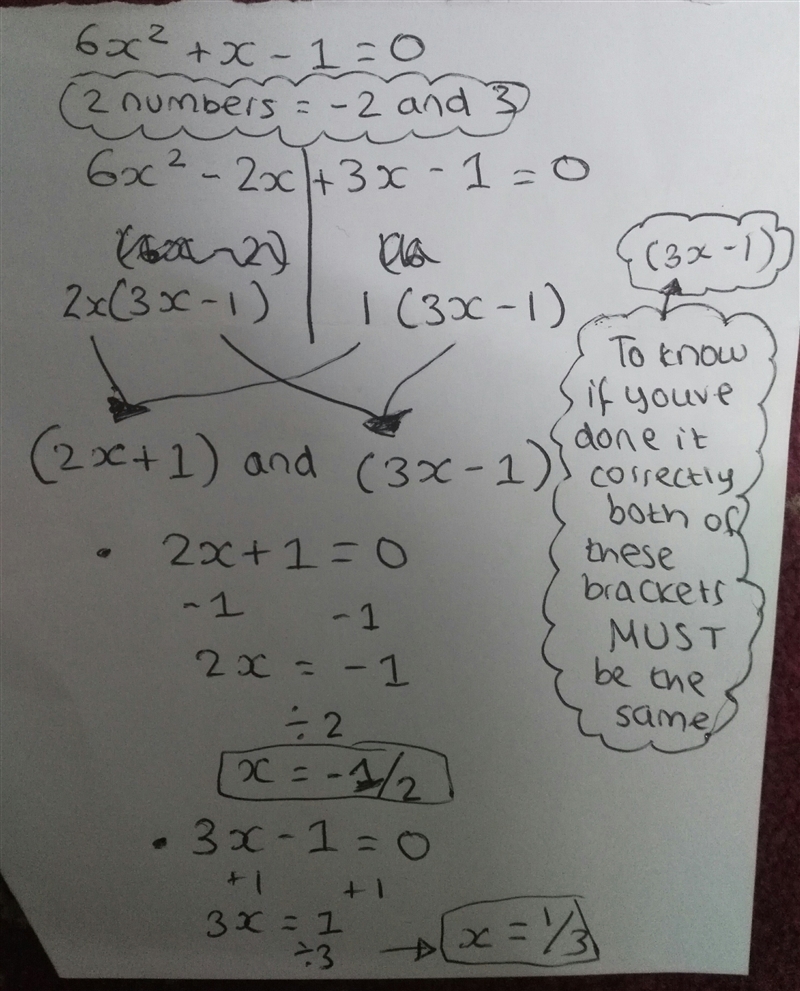 6x² + x - 1 = 0
2 numbers = -2 and 3
6x² - 2x + 3x - 1 = 0
2x(3x - 1) 1 (3x - 1)
(2x + 1) and (3x - 1)
• 2x + 1 = 0
-1 -1
2x = -1
÷2
x = -1/2
• 3x - 1 = 0
+1 +1
3x = 1
÷3 → x = 1/3
(3x - 1)
To know
if youve
done it
correctly
both of
these
brackets
MUST
be the
same